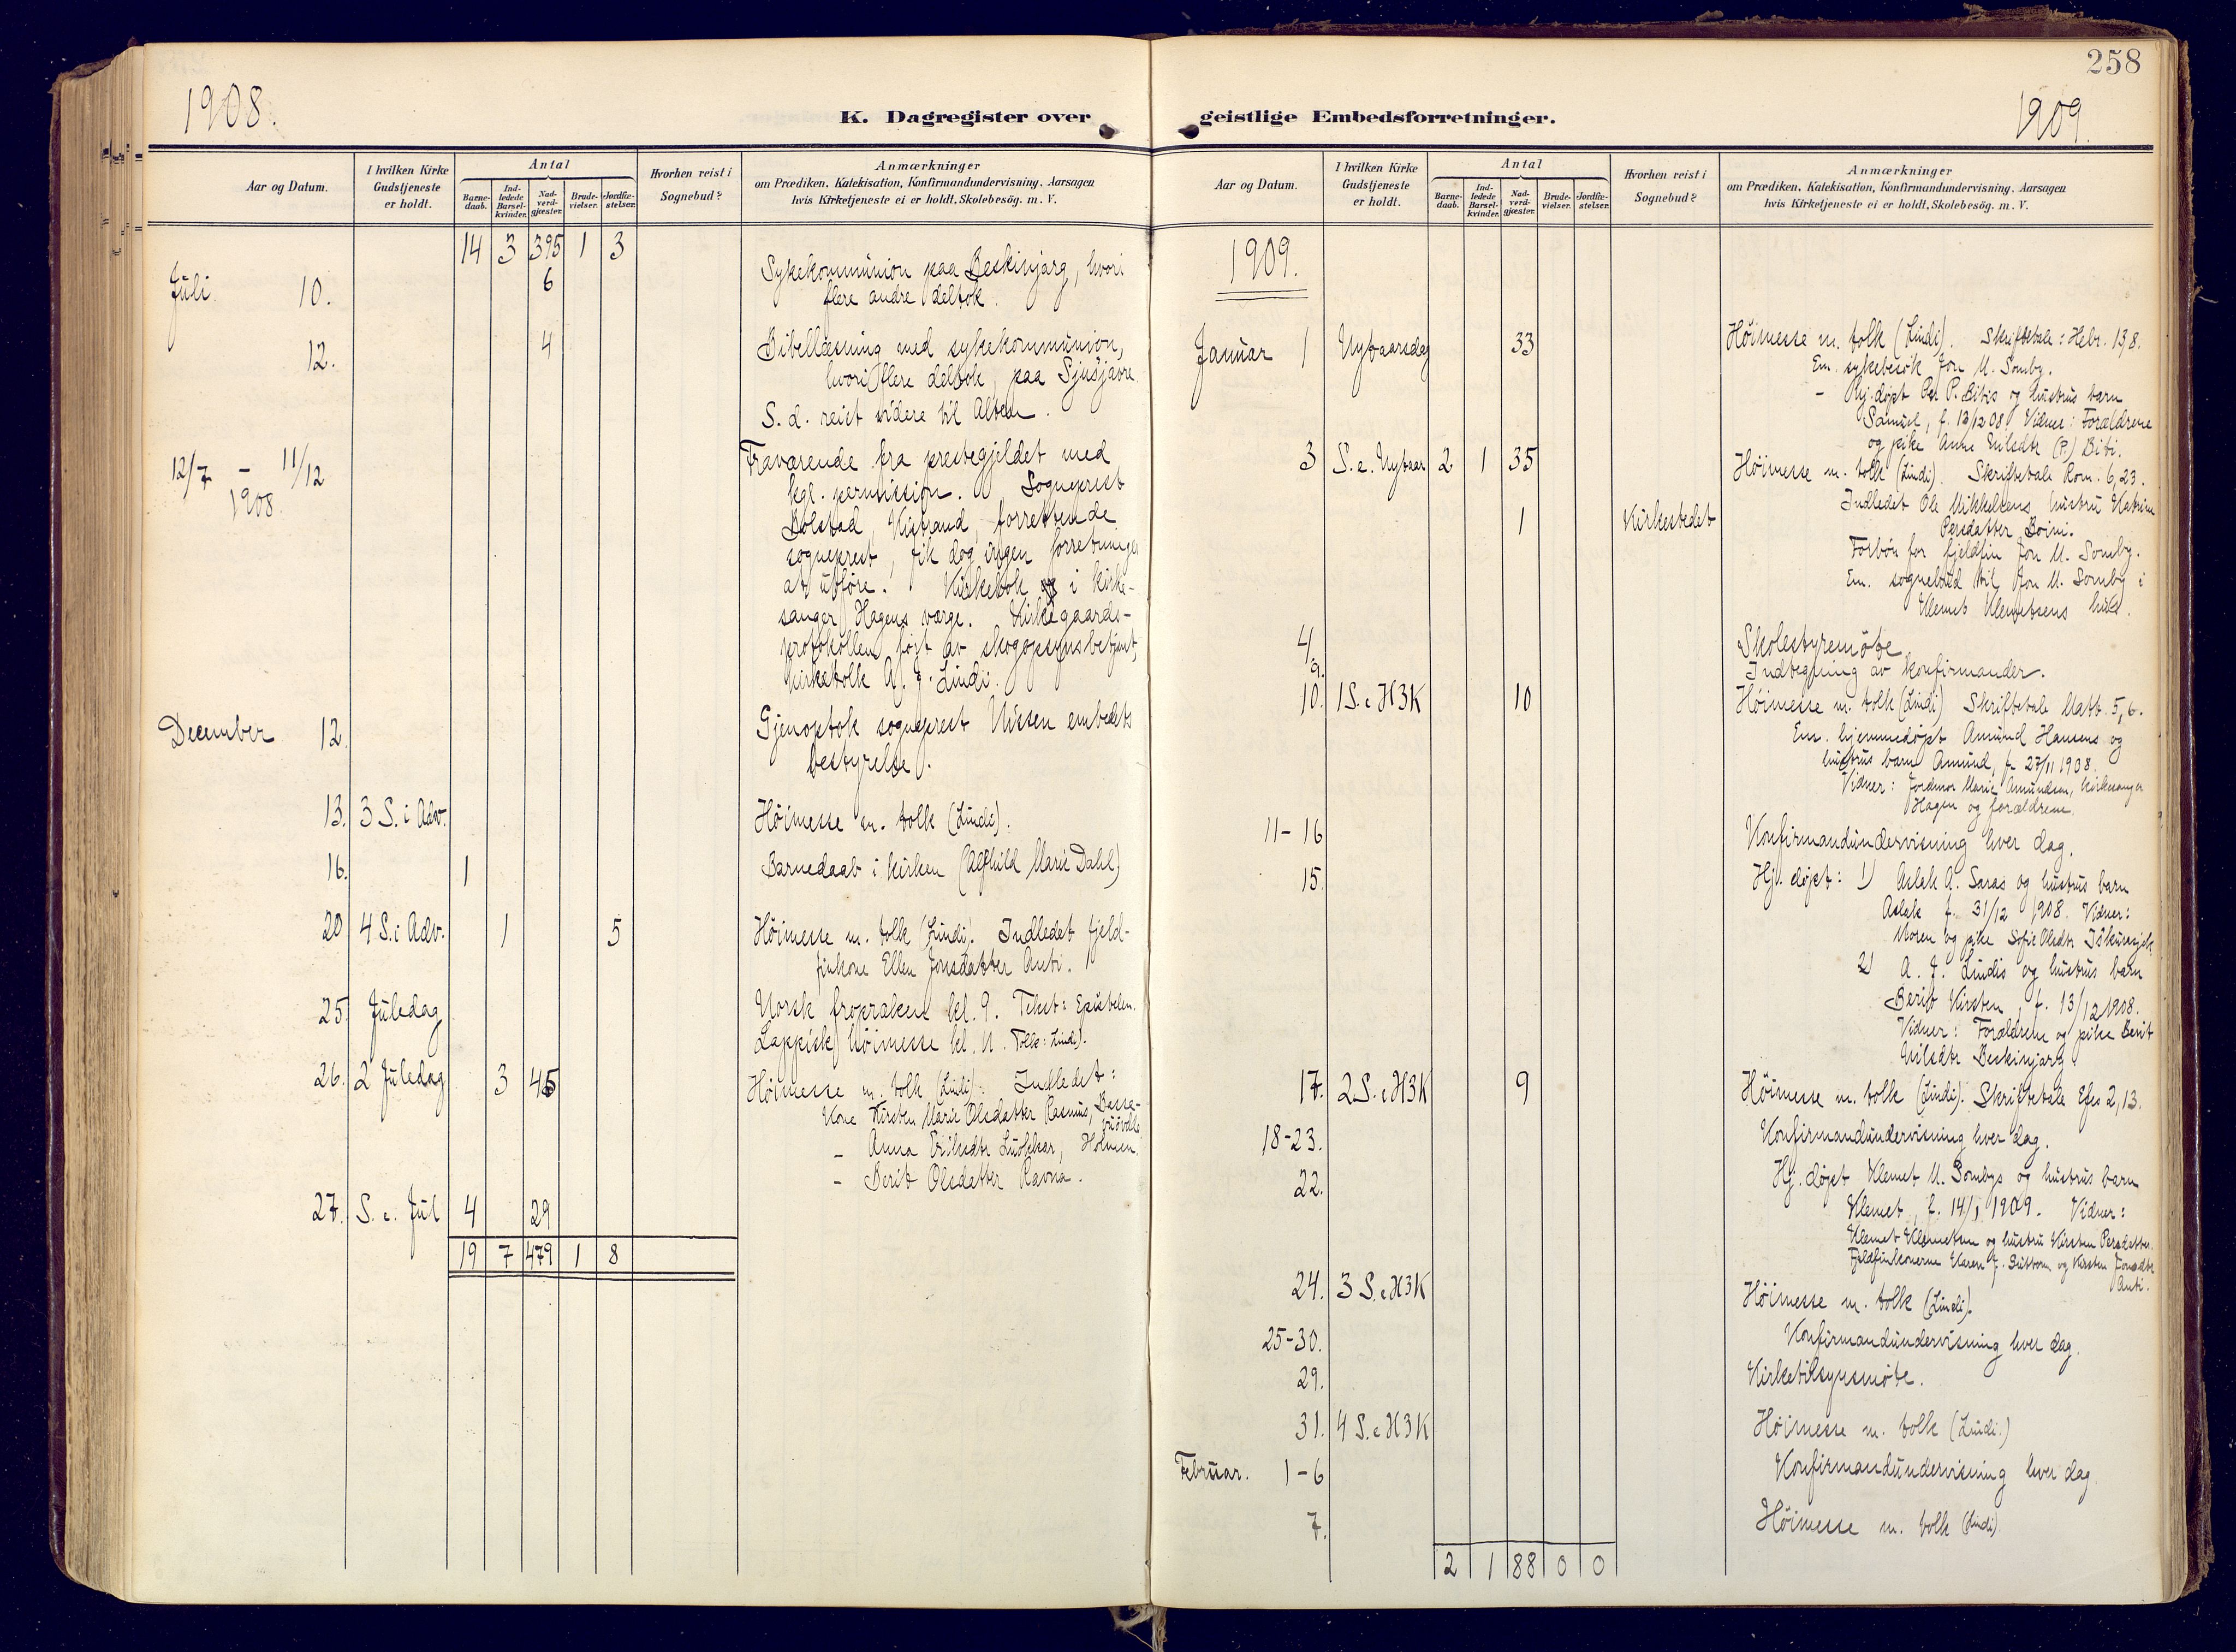 1908.
K. Dagregister over
Aar og Datum.
I hvilken Kirke Gudstjeneste er holdt.
Antal
Barne-daab.
Ind-ledede Barsel-kvinder.
Nad-verd-gjæster.
Brude-vielser.
Jordfæ-stelser.
Hvorhen reist i Sognebud?
Anmærkninger
om Prædiken, Katekisation, Konfirmandundervisning. Aarsagen
hvis Kirketjeneste ei er holdt. Skolebesög. m. V.
14 3 395 1 3
Juli 10. 6 Sykekommunion paa Beskinjarg, hvori
flere andre deltok.
12. 4 Bibellæsning med sykekommunion,
hvori flere deltok, paa Sjusjavre
S. d. reist videre til Alten.
12/7 – 11/12 Fraværende fra prestegjeldet med
1908. kgl. permission. Sogneprest
Bolstad, Kistrand, forrettende
sogneprest, fik dog ingen forretninger
at utføre. Kirkebok i kirke-
sanger Hagens værge. Kirkegaards-
protokollen ført av skogopsynsbetjent,
kirketolk A. J. Lindi.
December 12. Gjenoptok sogneprest Nissen embedets
bestyrelse.
13. 3 S. i Adv. Höimesse m. tolk (Lindi).
16. 1 Barnedaab i kirken (Alfhild Marie Dahl)
20 4 S. i Adv. 1 5 Höimesse m. tolk (Lindi). Indledet fjeld-
finkone Ellen Jonsdatter Anti.
25. Juledag Norsk fropræken kl. 9. Tekst: Epistelen.
Lappisk höimesse kl. 11. Tolk: Lindi).
26. 2 Juledag 3 45 Höimesse m. tolk (Lindi). Indledet:
Kone Kirsten Marie Olsdatter Rasmus,
– Anna Eriksdtr Luokkar, Holmen.
– Berit Olsdatter Ravna.
27. S. e. Jul 4 29
19 7 479 1 8
258
1909.
geistlige Embedsforretninger.
Aar og Datum.
I hvilken Kirke Gudstjeneste er holdt.
Antal
Barne-daab.
Ind-ledede Barsel-kvinder.
Nad-verd-gjæster.
Brude-vielser.
Jordfæ-stelser.
Hvorhen reist i Sognebud?
Anmærkninger
om Prædiken, Katekisation, Konfirmandundervisning. Aarsagen
hvis Kirketjeneste ei er holdt, Skolebesög. m. V.
1909.
Januar 1 Nytaarsdag 33 Höimesse m. tolk (Lindi). Skriftetale: Hebr. 13,8.
Em. sykebesök Jon M. Somby.
– Hj. döpt Per P. Bitis og hustrus barn
Samuel, f. 13/12 08 Vidner: Forældrene
og pike Anne Nilsdtr (P.) Biti.
3 S. e. Nytaar 2 1 35 Höimesse m. tolk (Lindi). Skriftetale Rom. 6,23.
Indledet Ole Mikkelsens hustru Katrine
1 Kirkestedet Persdatter Boini.
Forbön for fjeldfin Jon M. Somby.
Em. sognebud til Jon M. Somby i
Klemet Klemetsens hus.
4/ Skolestyremöte
9. Indtegning av konfirmander.
10. 1 S. e H3K 10 Höimesse m. tolk (Lindi) Skriftetale Matt. 5,6.
Em. hjemmedöpt Amund Hansens og
hustrus barn Amund, f. 27/11 1908.
Vidner: Jordmor Marie Amundsen, kirkesanger
Hagen og forældrene.
11–16 Konfirmandundervisning hver dag.
15. Hj. döpt: 1) Aslak A. Saras og hustrus barn
Aslak f. 31/12 1908. Vidner:
Moren og pike Sofie Olsdtr
2) A. J. Lindis og hustrus barn
Berit Kirsten, f. 13/12 1908.
Vidner: Forældrene og pike Berit
Nilsdtr Beskinjarg
17. 2 S. e H3K 9 Höimesse m. tolk (Lindi). Skriftetale Efes 2,13.
18–23. Konfirmandundervisning hver dag.
22. Hj. döpt Klemet M. Sombys og hustrus barn
Klemet, f. 14/1 1909. Vidner:
Klemet Klemetsen og hustru Kirsten Persdatter.
Fjeldfinkonerne Karen J. Guttorm og Kirsten Jonsdtr
Anti.
24. 3 S. e H3K Höimesse m. tolk (Lindi).
25–30. Konfirmandundervisning hver dag.
29. Kirketilsynsmöte.
31. 4 S. e H3K Höimesse m. tolk (Lindi.)
Februar. 1–6 Konfirmandundervisning hver dag.
7. Höimesse m. tolk (Lindi).
2 1 88 0 0